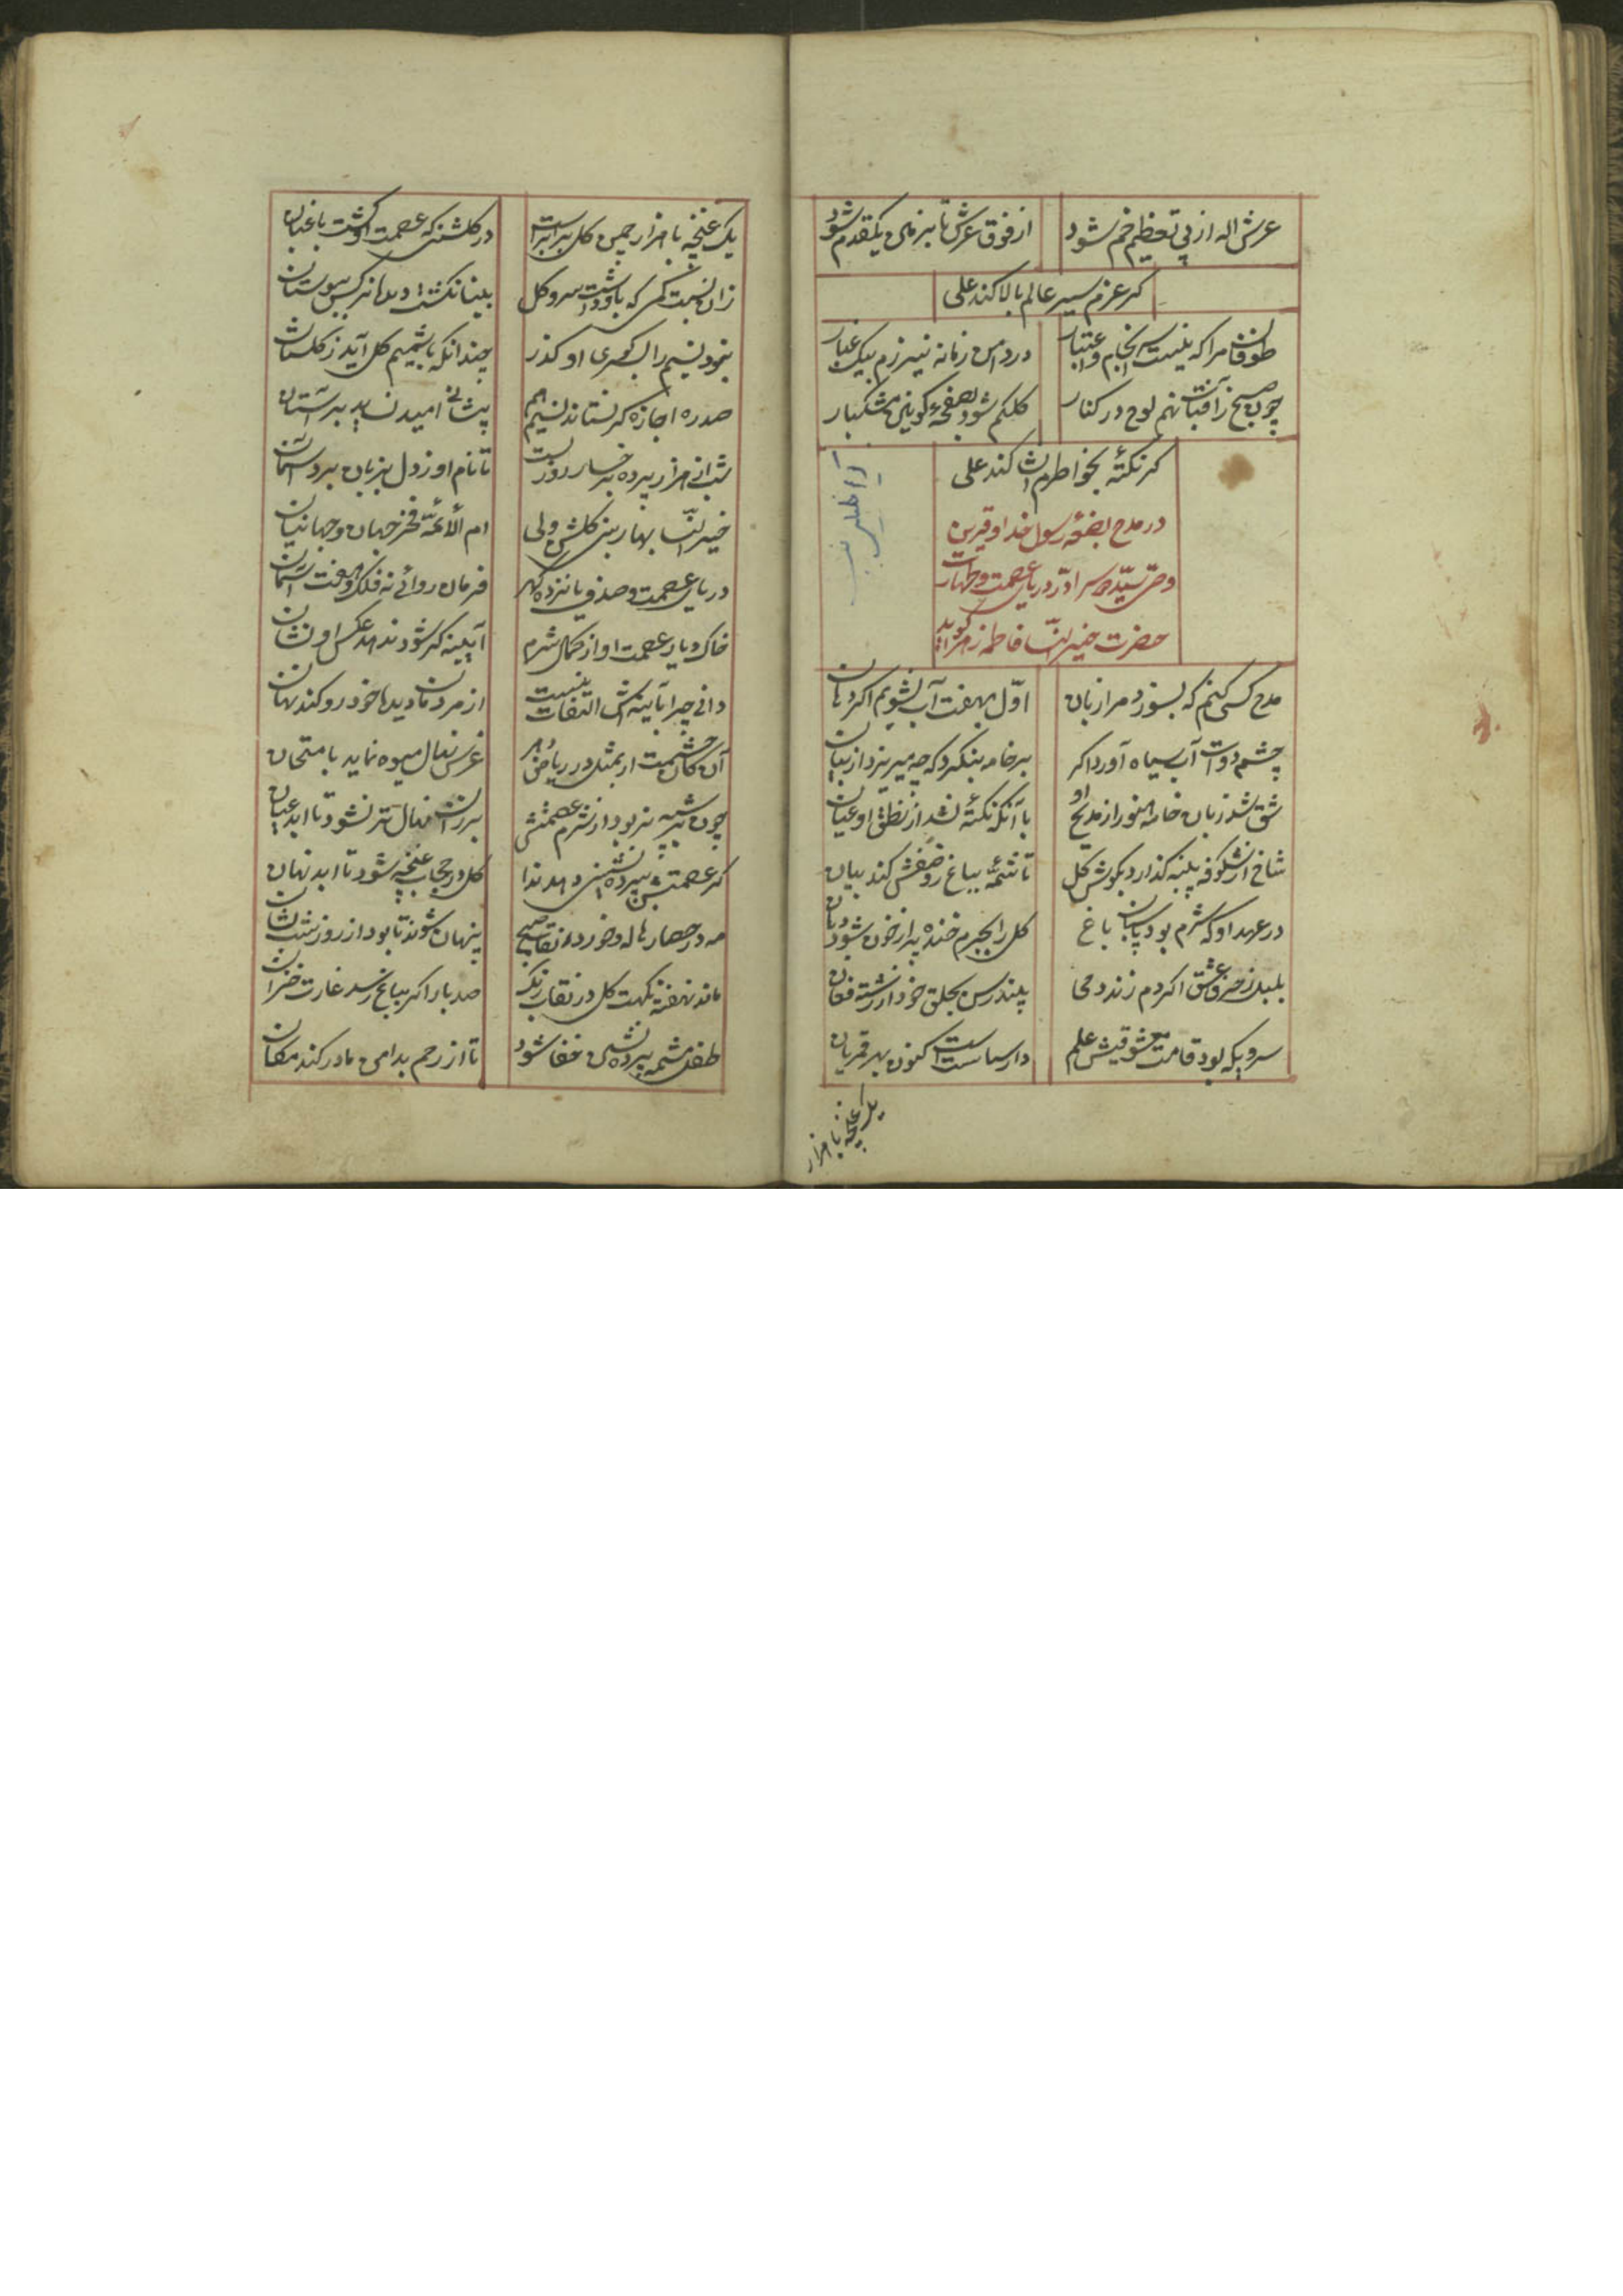 عرش اله از پی تعظیم خم شود از فوق عرش تا بزمین یکقدم شود
کر عزم سیر عالم بالا کند علی
طوفان مرا که نیست سرانجام و اعتبار در دامن زمانه نیرزم بیک غبار
چون صبح ز آفتاب نهم لوح در کنار کلکم شود بصفحهٔ کونین مشکبار
کر نکتهٔ بخواطرم انشا کند علی
در مدح بضعه رسول خدا و قرین
وصی سیده سرا در دریای عصمت و طهارت
حضرت خیر النسا فاطمه زهرا کوید
مدح کسی کنم که بسوزد مرا زبان اول بهفت آب نشویم اکر دهان
چشم دوات آب سیاه آورد اکر بر خامه بنکرد که چه میریزد از بیان
شق شد زبان خامه هنوز از مدیح او با آنکه نکتهٔ نشد از نطق او عیان
شاخ از شکوفه پنبه کذارد بکوش کل تا شمهٔ بباغ ز وصفش کند بیان
در عهد او که شرم بود پاسبان باغ کل را بجرم خنده پر از خون شود دهان
بلبل ز حرف عشق اکر دم زند دمی بندد رسن بحلق خود از رشته فغان
سرویکه بود قامت معشوقیش علم دار سیاست است کنون بهر قمریان
یک غنچه با هزار
یک غنچه با هزار چمن کل برابر است در کلشنی که عصمت او کشت باغبان
زان نسبت کمی که باو داشت سرو و کل بینا نکشت دیده نرکس ببوستان
نبود نسیم را بسر کوی او کذر چندانکه با شمیم کل آید ز کلستان
صد ره اجازه کر نستاند نسیم هم پیشانی امید نساید بر آستان
شب از هزار پرده برخسار روز بست تا نام او ز دل بزبان برد آسمان
خیر النسا بهارین کلشن ولی ام الائمه فخر جهان و جهانیان
دریای عصمت و صدف یازده کهر فرمان روائے نه فلک و هفت آسمان
خاک دیار عصمت او از کمال شرم آیینه کر شود ندهد عکس او نشان
دانی چرا بآینه اش التفات نیست از مردمان دیده خود رو کند نهان
آن کان حشمت ار بمثل در ریاض دهر غرس نهال میوه نماید بامتحان
چون تیر شه پر بود از شرم عصمتش بر زان نهال تر نشود تا ابد عیان
کر عصمتش بپرده نشینی دهد ندا کل در حجاب غنچه شود تا ابد نهان
مه در حصار هاله و خور در نقاب صبح پنهان شوند تا بود از روز و شب نشان
ماند نهفته نکهت کل در نقاب رنک صد بار اکر بباغ رسد غارت خزان
طفل مشیمه پرده نشین خفا شود تا از رحم بدامن مادر کند مکان